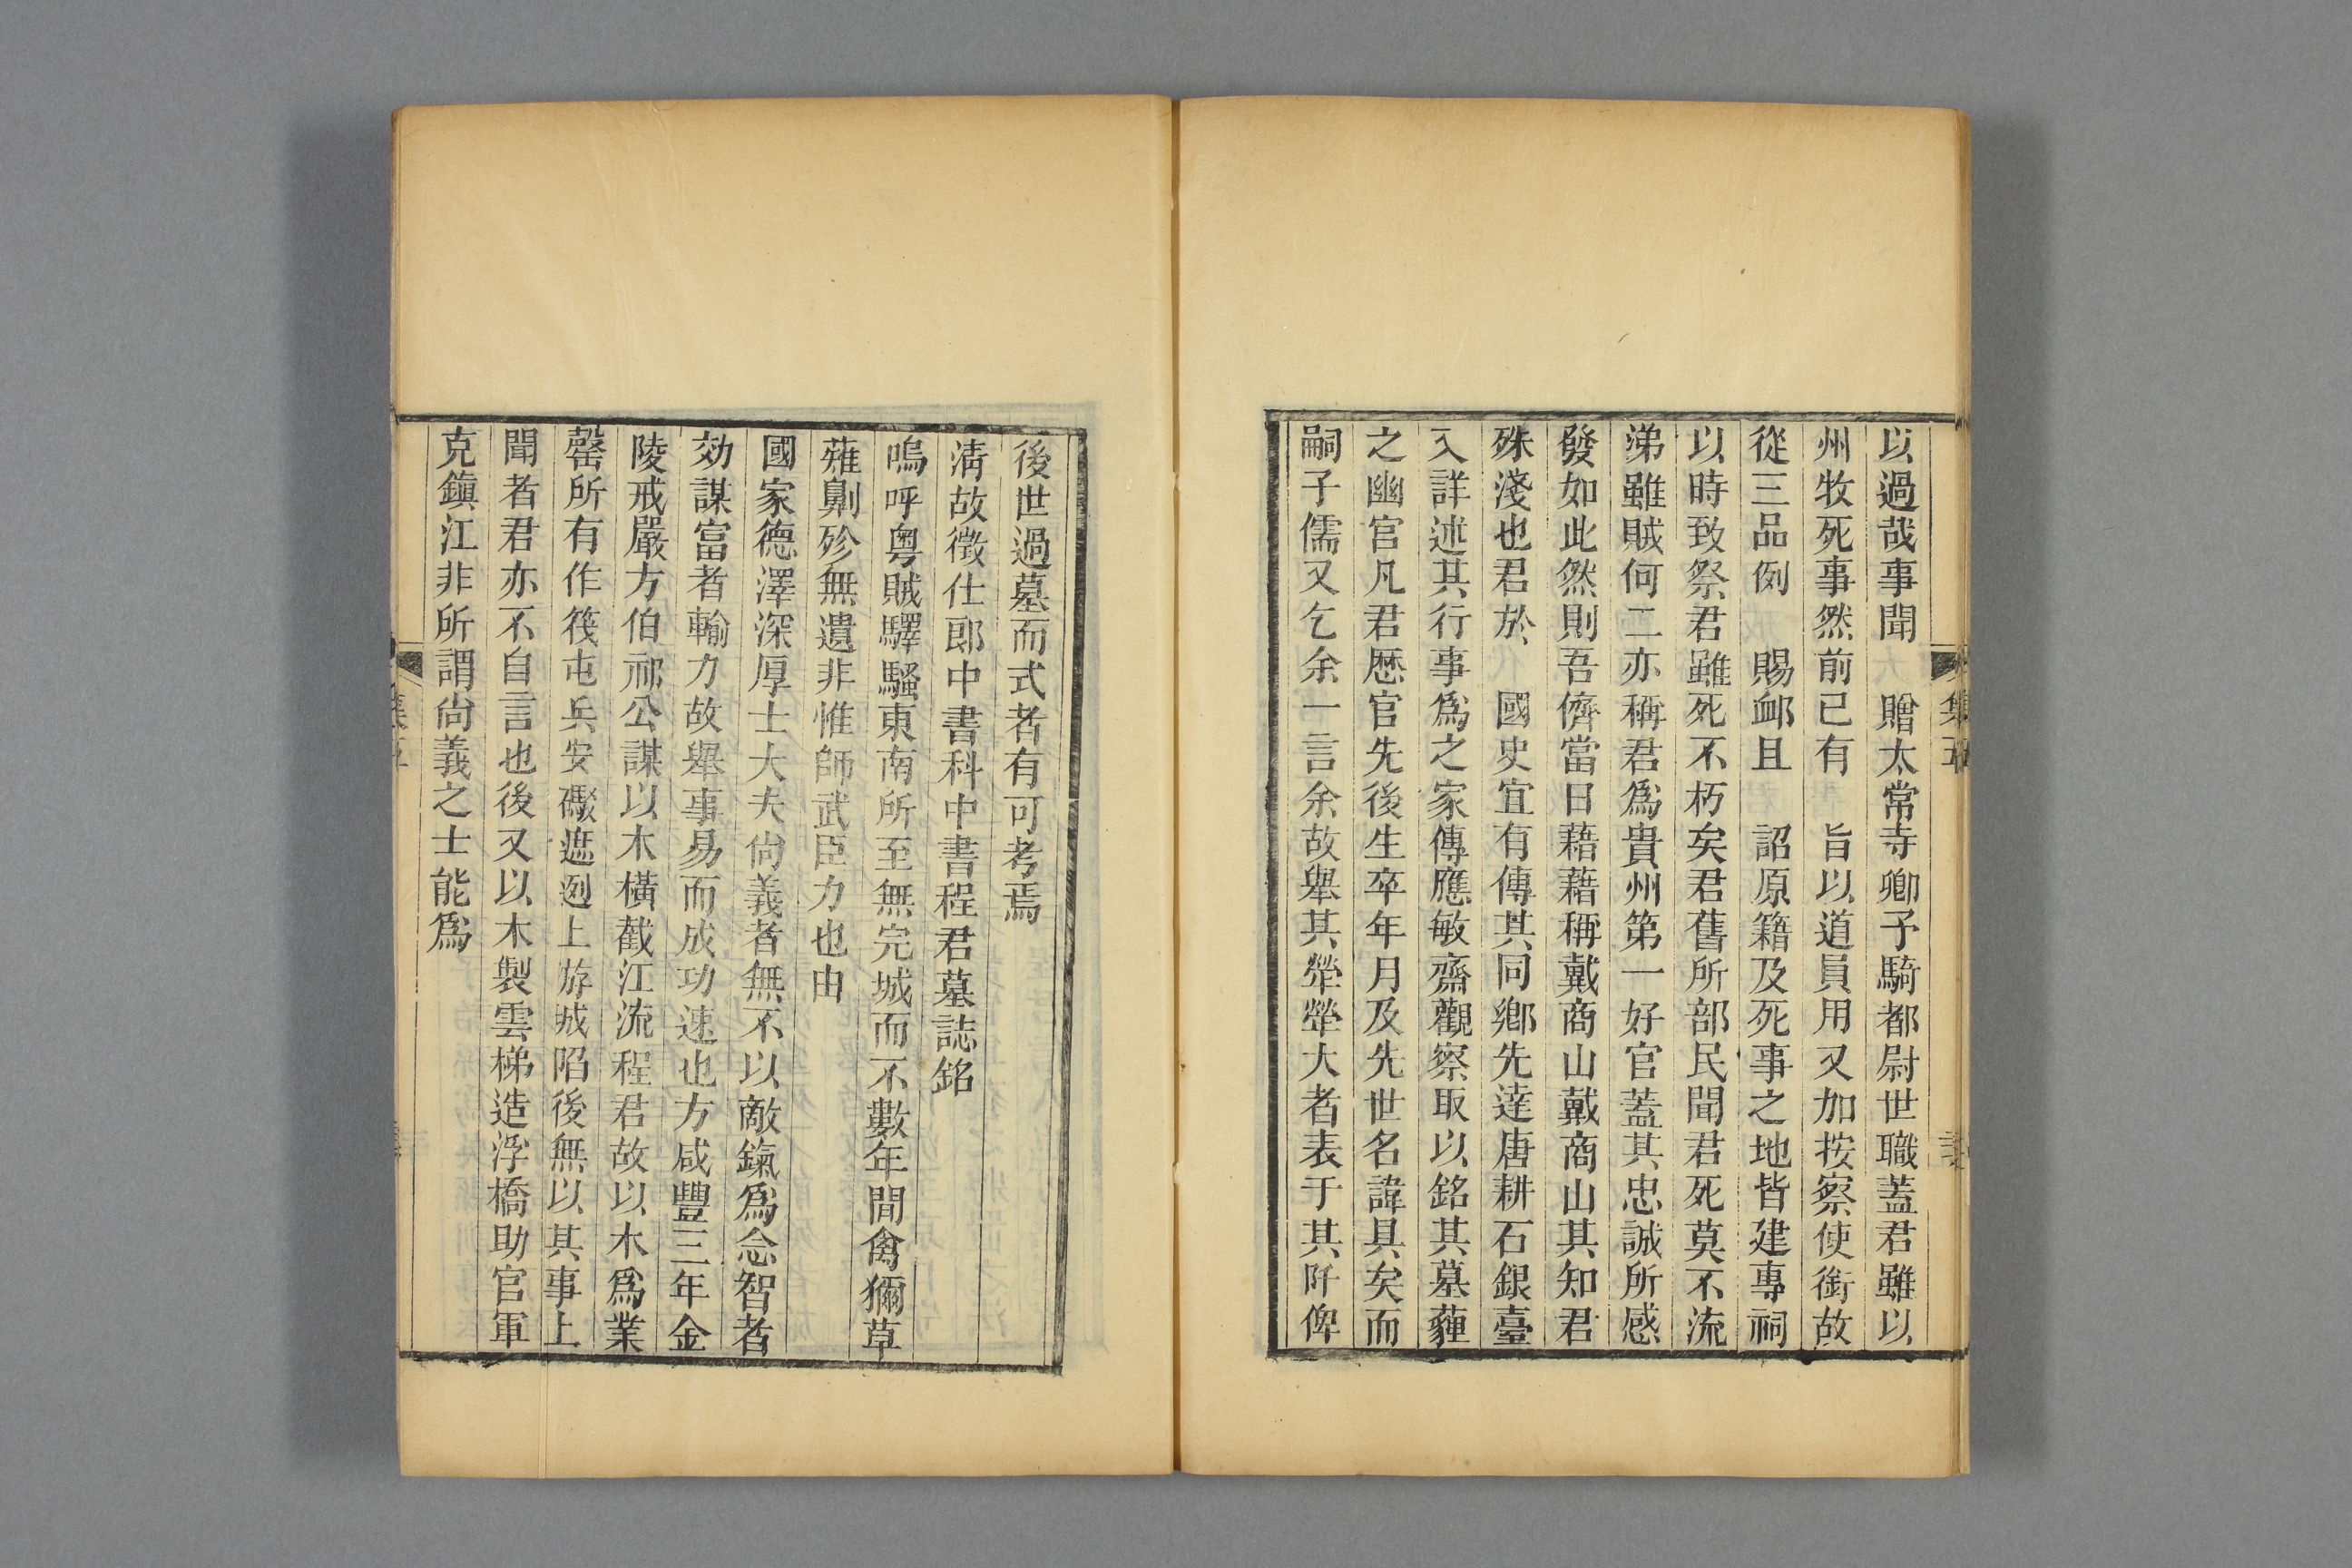 以過哉事聞　贈太常寺卿予騎都尉世職蓋君雖以
州牧死事然前已有　旨以道員用又加按察使銜故
從三品例　賜卹且　詔原籍及死事之地皆建專祠
以時致祭君雖死不朽矣君舊所部民聞君死莫不流
涕雖賊何二亦稱君爲貴州第一好官蓋其忠誠所感
發如此然則吾儕當日藉藉稱戴商山戴商山其知君
殊淺也君於　國史宜有傳其同鄕先達唐耕石銀臺
入詳述其行事爲之家傳應敏齋觀察取以銘其墓薶
之幽宮凡君歷官先後生卒年月及先世名諱具矣而
嗣子儒又乞余一言余故舉其犖犖大者表于其阡俾
後世過墓而式者有可考焉
淸故徵仕郎中書科中書程君墓誌銘
嗚呼粵賊驛騷東南所至無完城而不數年間禽獮草
薙劓殄無遺非惟師武臣力也由
國家德澤深厚士大夫尙義者無不以敵鎎爲念智者
効謀富者輸力故舉事易而成功速也方咸豐三年金
陵戒嚴方伯祁公謀以木橫截江流程君故以木爲業
罄所有作筏屯兵安礮遮迾上游城陷後無以其事上
聞者君亦不自言也後又以木製雲梯造浮橋助官軍
克鎭江非所謂尙義之士能爲
集五